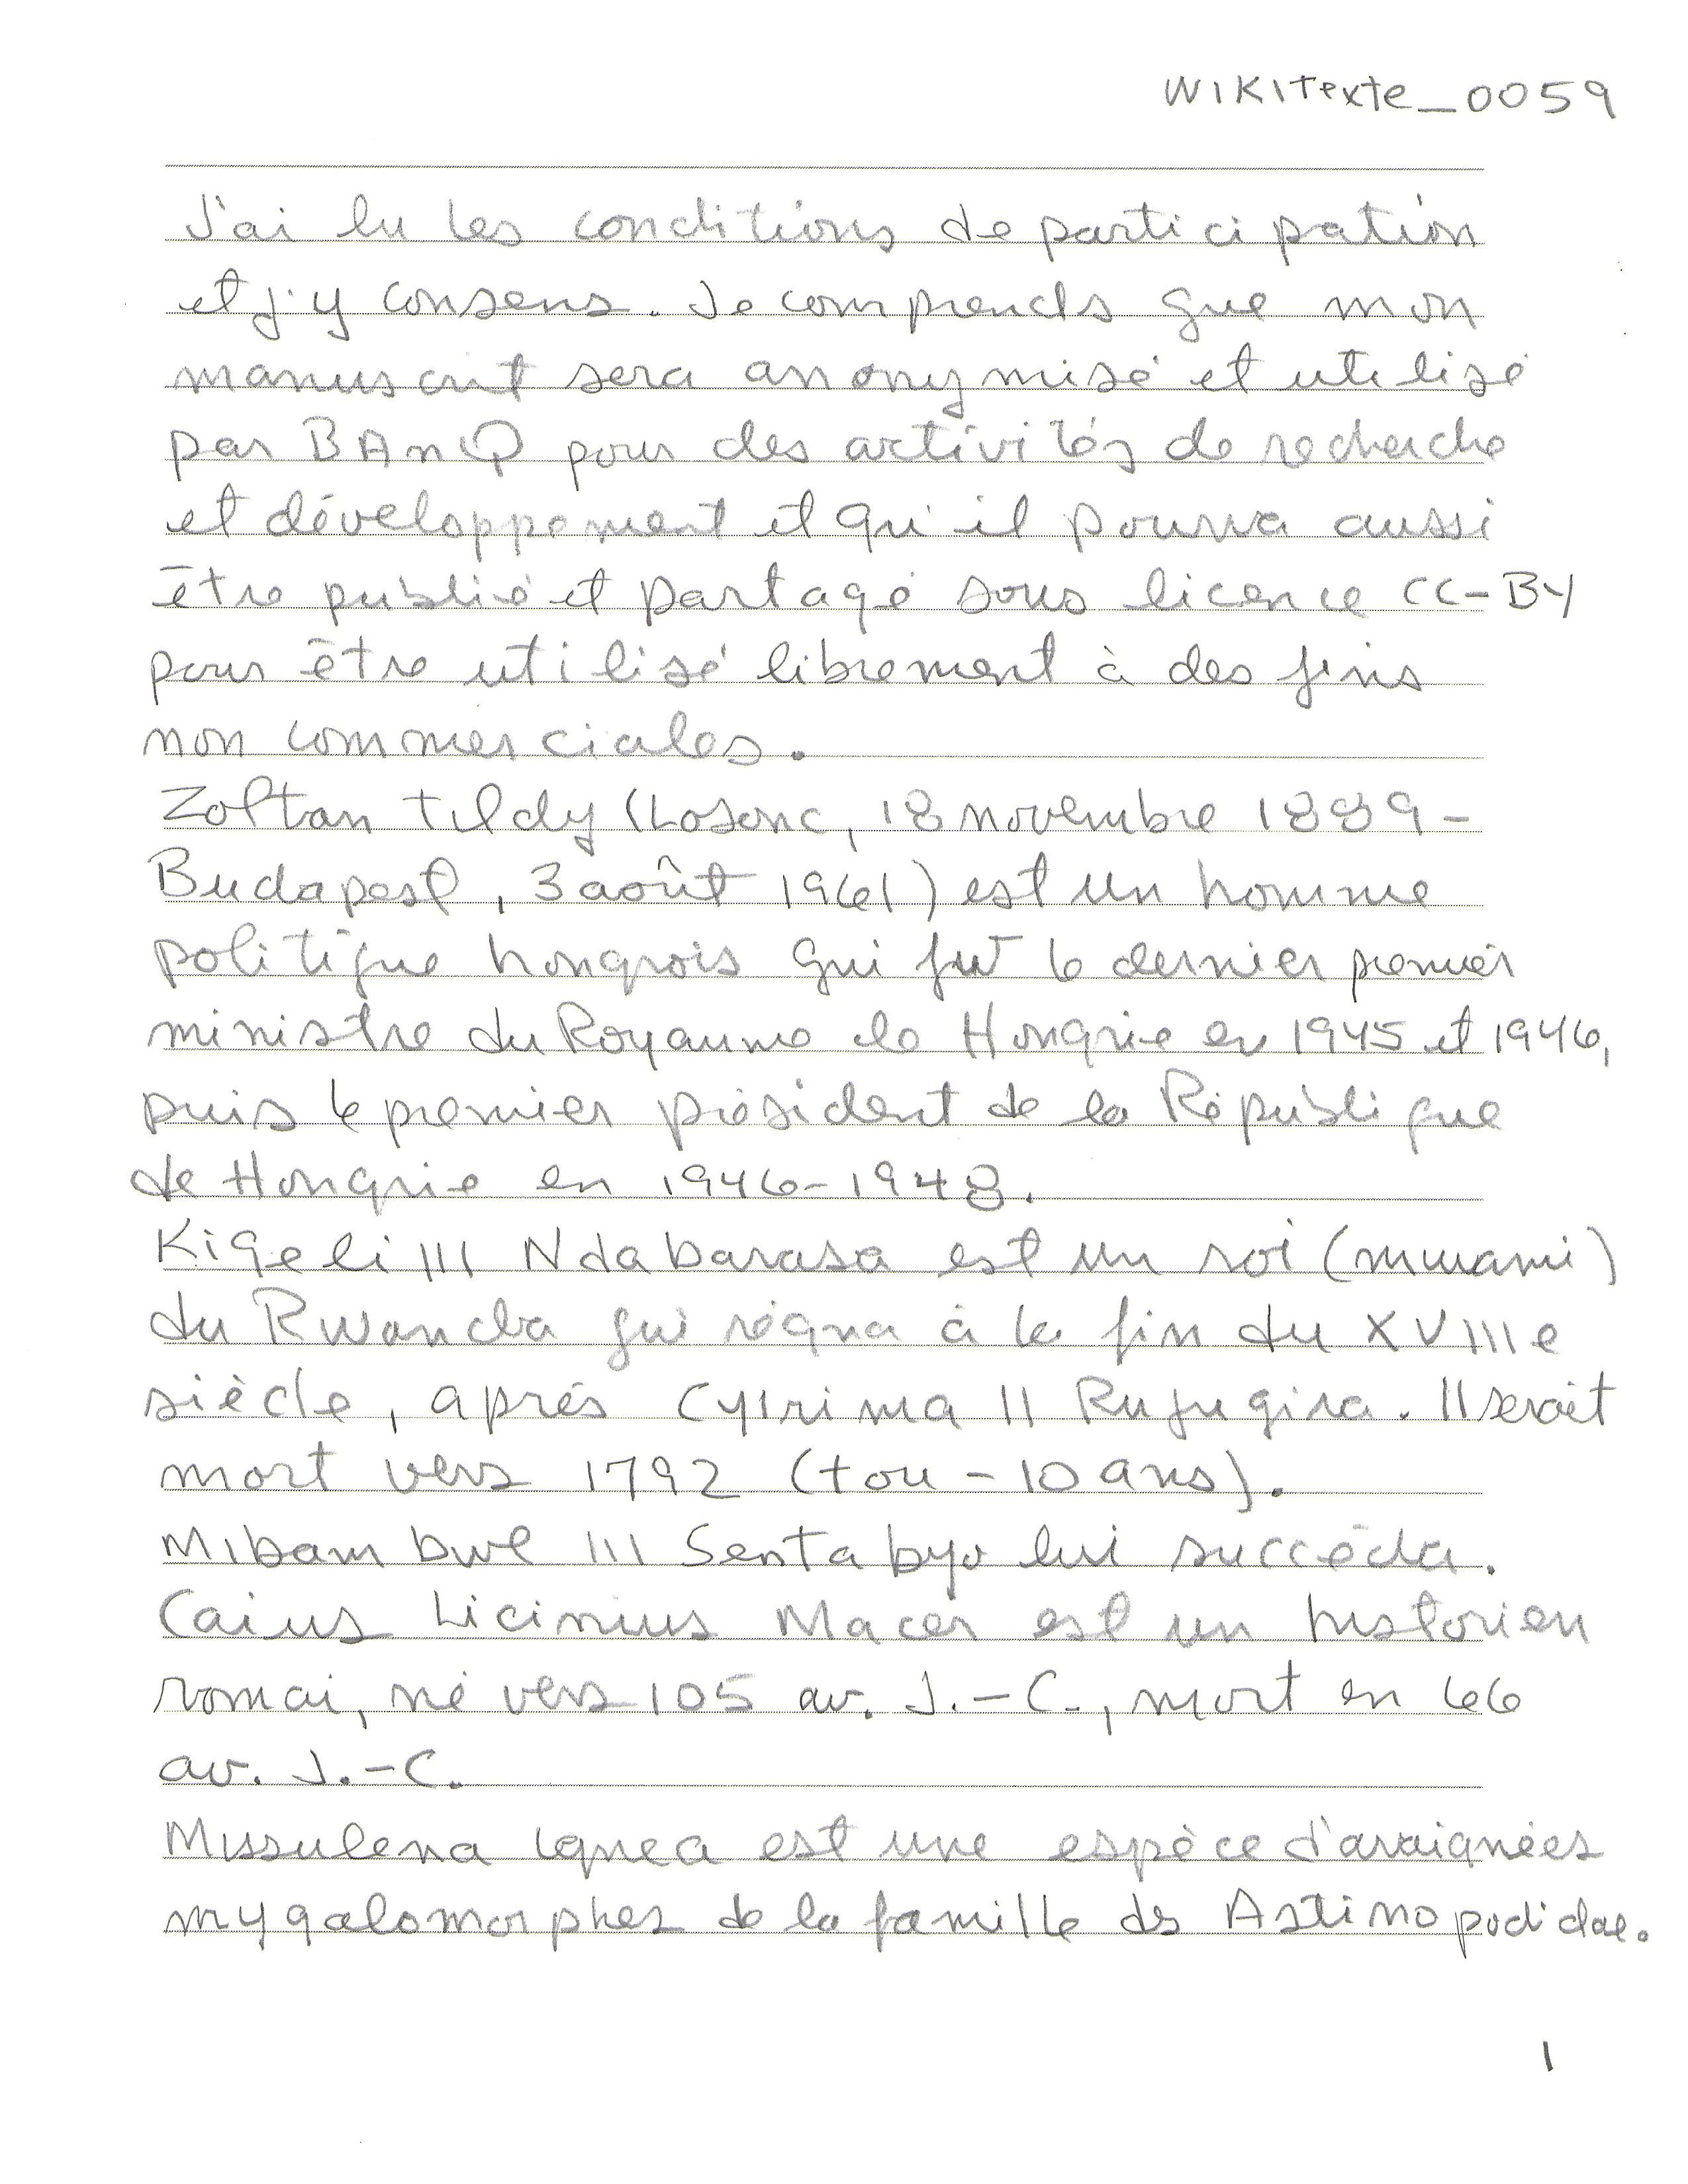 WIKITexte_0059
J'ai lu les conditions de participation
et j'y consens. Je comprends que mon
manuscrit sera anonymisé et utilisé
par BAnQ pour des activités de recherche
et développement et qu'il pourra aussi
être publié et partagé sous licence CC-BY
pour être utilisé librement à des fins
non commerciales.
Zoltan Tildy (Losonc, 18 novembre 1889-
Budapest, 3 août 1961) est un homme
politique hongrois qui fut le dernier premier
ministre du Royaume de Hongrie en 1945 et 1946,
puis le premier président de la République
de Hongrie en 1946-1948.
Kigeli III Ndabarasa est un roi (mwami)
du Rwanda qui régna à la fin du XVIIIe
siècle, après Cyirima II Rujugira. Il serait
mort vers 1792 (+ ou - 10 ans).
Mibambwe III Sentabyo lui succéda.
Caius Licinius Macer est un historien
romai, né vers 105 av. J.-C., mort en 66
av. J.-C.
Missulena ignea est une espèce d'araignées
mygalomorphes de la famille des Actinopodidae.
1